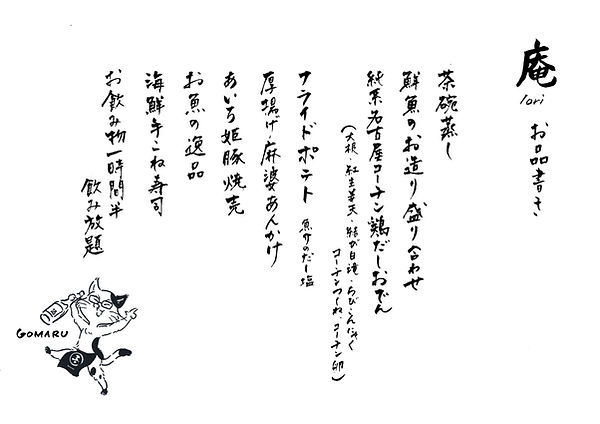 庵
Iori
お品書き
茶碗蒸し
鮮魚のお造り盛り合わせ
純系名古屋コーチン鶏だしおでん
(大根・紅生姜天・結び白滝・ちび・こんにゃく
コーチンつくね・コーチン卵)
フライドポテト 魚介のだし塩
厚揚げ・麻婆あんかけ
あいち姫豚焼売
お魚の逸品
海鮮手こね寿司
お飲み物一時間半
飲み放題
GOMARU